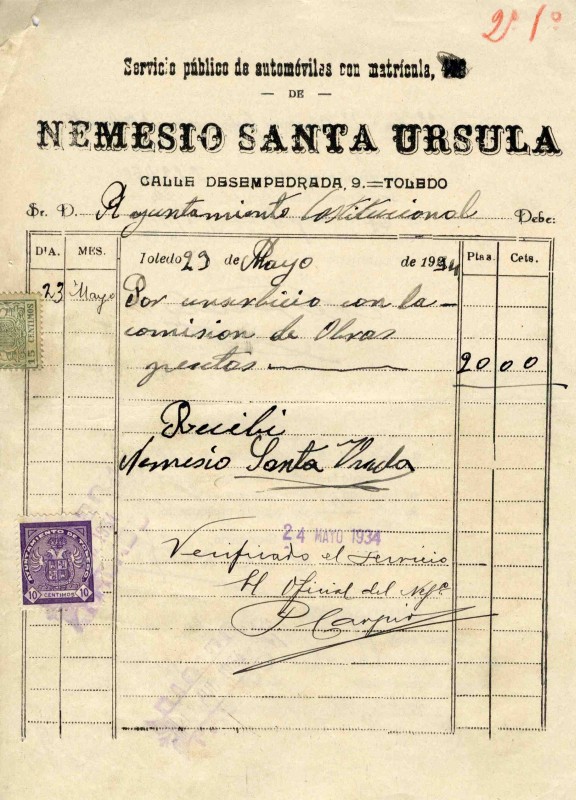 2º 1º
Servicio público de automóviles con matrícula,
— DE —
NEMESIO SANTA URSULA
CALLE DESEMPEDRADA, 9.=TOLEDO
Sr. D. Ayuntamiento Costitucional Debe:
DIA. MES. Toledo 23 de Mayo de 1934 Ptas. Cets.
23 Mayo Por unserbicio con la
comision de Obras
pesetas 20 00
Recibi
Nemesio Santa Ursula
24 MAYO 1934
Verificado el servicio
El Oficial del Neg.º
P Carpio
15 CENTIMOS
AYUNTAMIENTO DE TOLEDO
10 CENTIMOS 10